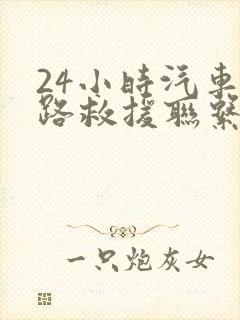 24小時汽車
路救援聯繫
一只炮灰女